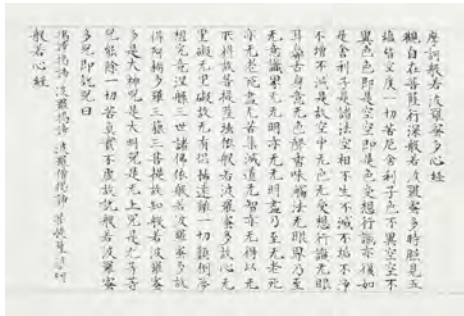 摩訶般若波羅蜜多心経
観自在菩薩行深般若波羅蜜多時照見五
蘊皆空度一切苦厄舎利子色不異空空不
異色色即是空空即是色受想行識亦復如
是舎利子是諸法空相不生不滅不垢不浄
不増不減是故空中无色无受想行識无眼
耳鼻舌身意无色声香味触法无眼界乃至
无意識界无无明亦无无明盡乃至无老死
亦无老死盡无苦集滅道无智亦无得以无
所得故菩提薩埵依般若波羅蜜多故心无
罣礙无罣礙故无有恐怖遠離一切顛倒夢
想究竟涅槃三世諸佛依般若波羅蜜多故
得阿耨多羅三藐三菩提故知般若波羅蜜
多是大神呪是大明呪是无上呪是无等等
呪能除一切苦真實不虚故説般若波羅蜜
多呪即説呪曰
揭諦揭諦 波羅揭諦 波羅僧揭諦 菩提薩婆訶
般若心経